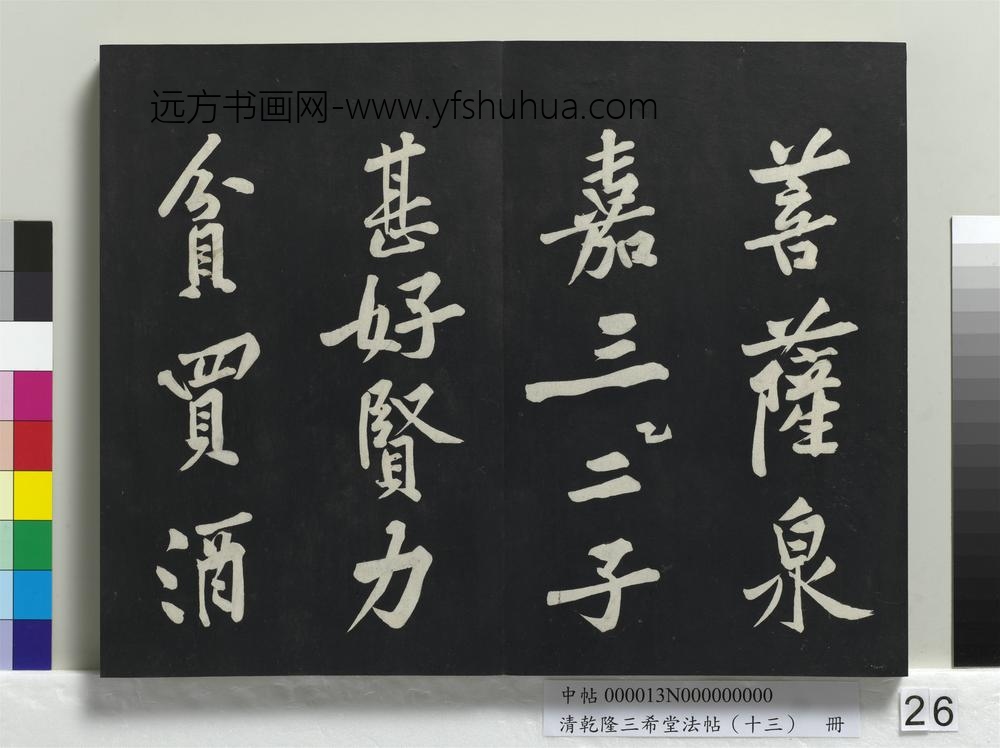 远方书画网-www.yfshuhua.com
菩薩泉
嘉三乙二子
甚好賢力
貧買酒
中帖 000013N000000000
清乾隆三希堂法帖（十三） 冊
26